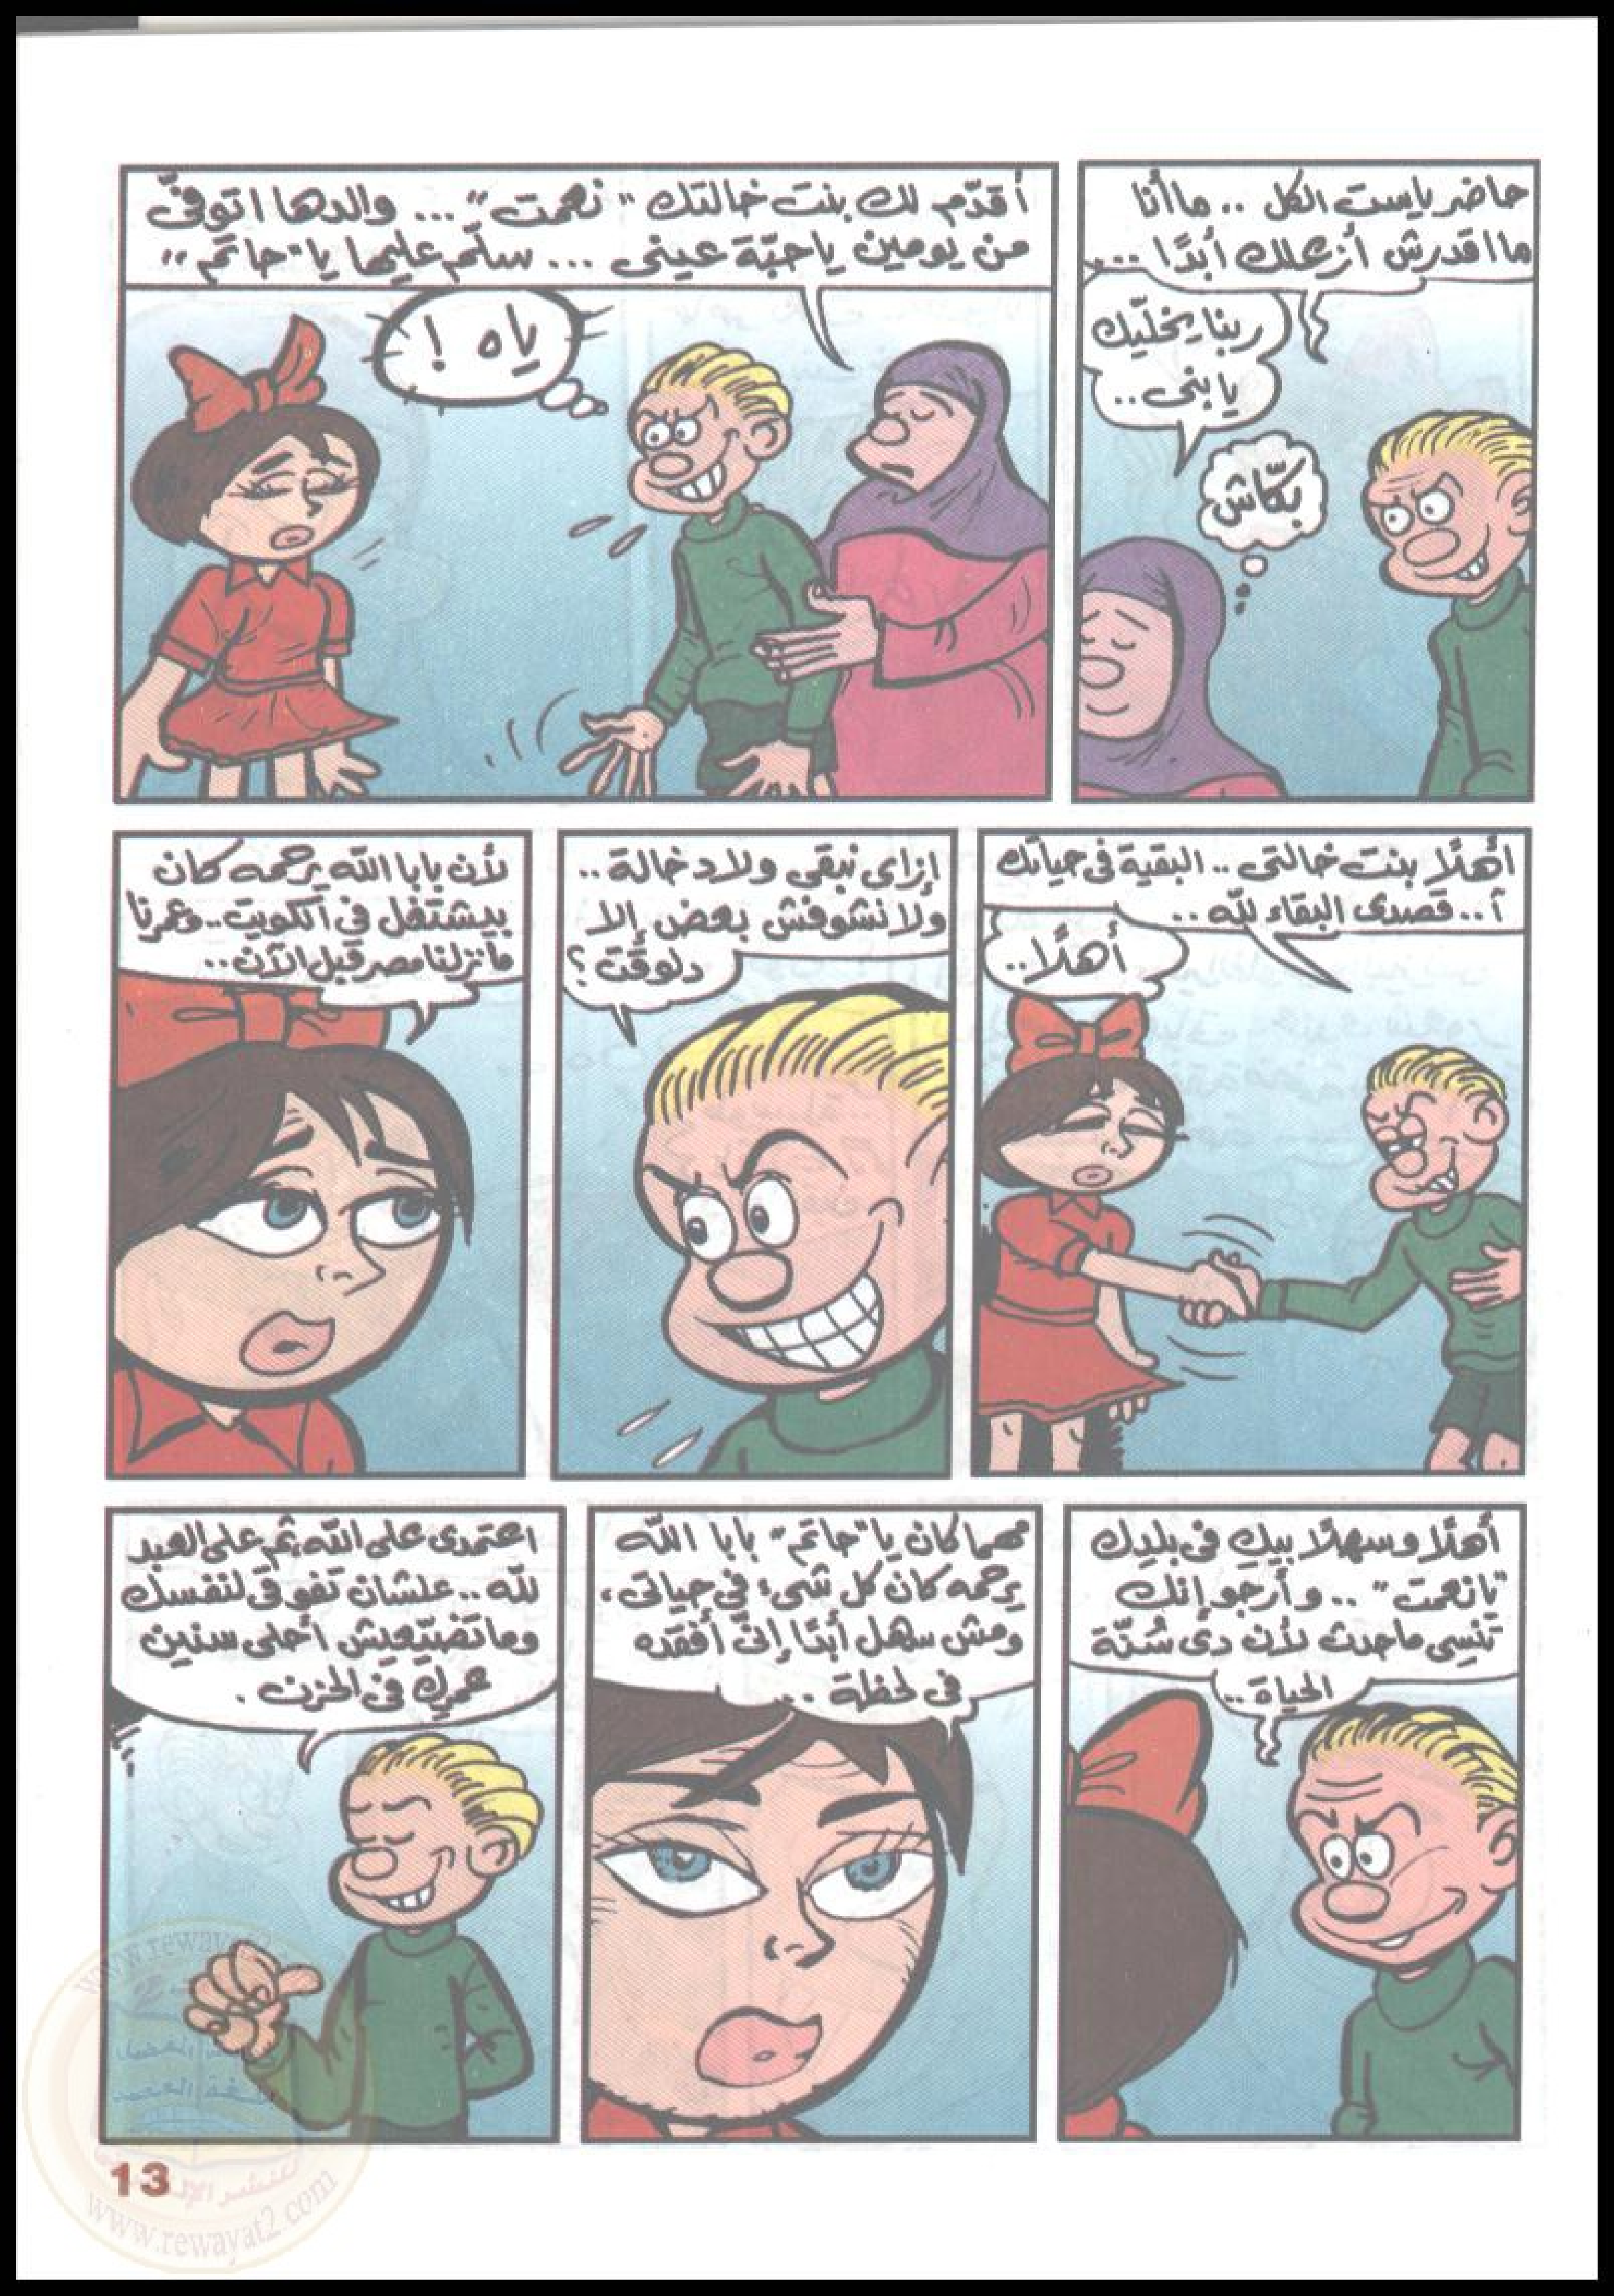 حاضر ياست الكل .. ما أنا
ما اقدرش أزعلك أبدًا ...
ربنا يخلّيك
يا بنى ..
بكّاش
أقدّم لك بنت خالتك "نعمت" ... والدها اتوفّى
من يومين يا حبّة عينى ... سلّم عليها يا "حاتم"
ياه !
أهلًا بنت خالتى .. البقية فى حياتك
آ .. قصدى البقاء للّه ..
أهلًا ..
إزاى نبقى ولاد خالة ..
ولا نشوفش بعض إلا
دلوقت ؟
لأن بابا اللّه يرحمه كان
بيشتغل فى الكويت .. وعمرنا
ما نزلنا مصر قبل الآن ..
أهلًا وسهلًا بيكِ فى بلدِك
"يا نعمت" .. وأرجو إنك
تنسِى ما حدث لأن دى سُنّة
الحياة ..
مهما كان يا "حاتم" بابا اللّه
يرحمه كان كل شىء فى حياتى،
ومش سهل أبدًا إنّى أفقده
فى لحظة ..
اعتمدى على اللّه ثم على العبد
للّه .. علشان تفوقى لنفسك
وما تضيّعيش أحلى سنين
عمرِك فى الحزن .
13
www.rewayat2.com